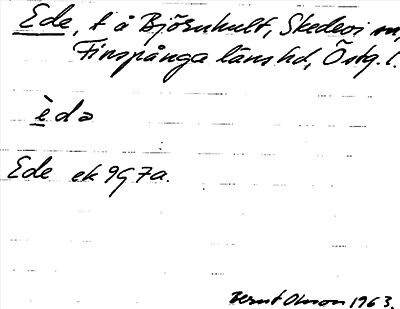 Ede, t å Björnhult, Skedevi sn,
Finspånga läns hd, Östg. l.
èdə
Ede ek 9G 7a.
Bernt Olsson 1963.